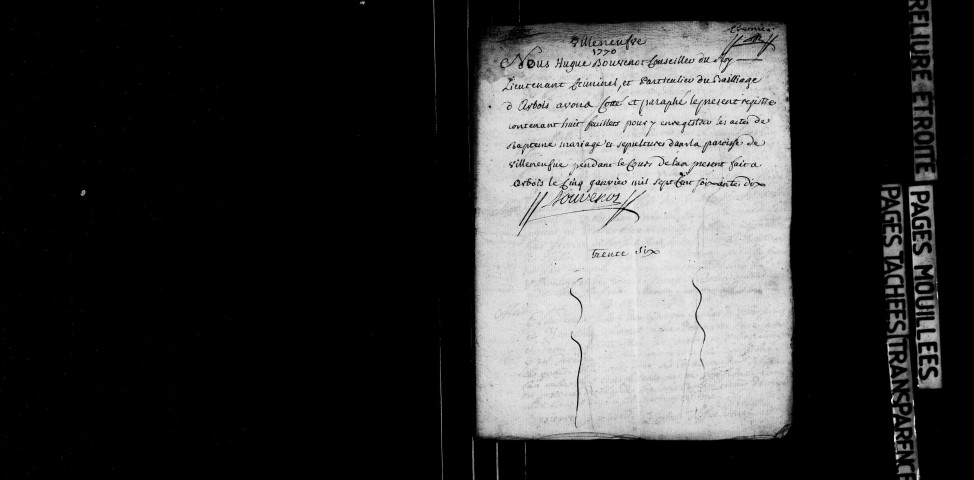 Premier
Villeneufve
1770
Nous Hugue Bouvenot Conseiller du Roy
Lieutenant Criminel, et Particulier du Bailliage
d Arbois avons Cotté et paraphé le present registre
contenant huit feuillets pour y enregistrer les actes de
Bapteme mariage et sepultures dans la paroisse de
Villeneufve pendant le Cours de lan present fait a
Arbois le Cinq janvier mil sept Cent soixante dix
Bouvenot
trente Six
RELIURE ETROITE
PAGES MOUILLEES
PAGES TACHEES TRANSPARENCE